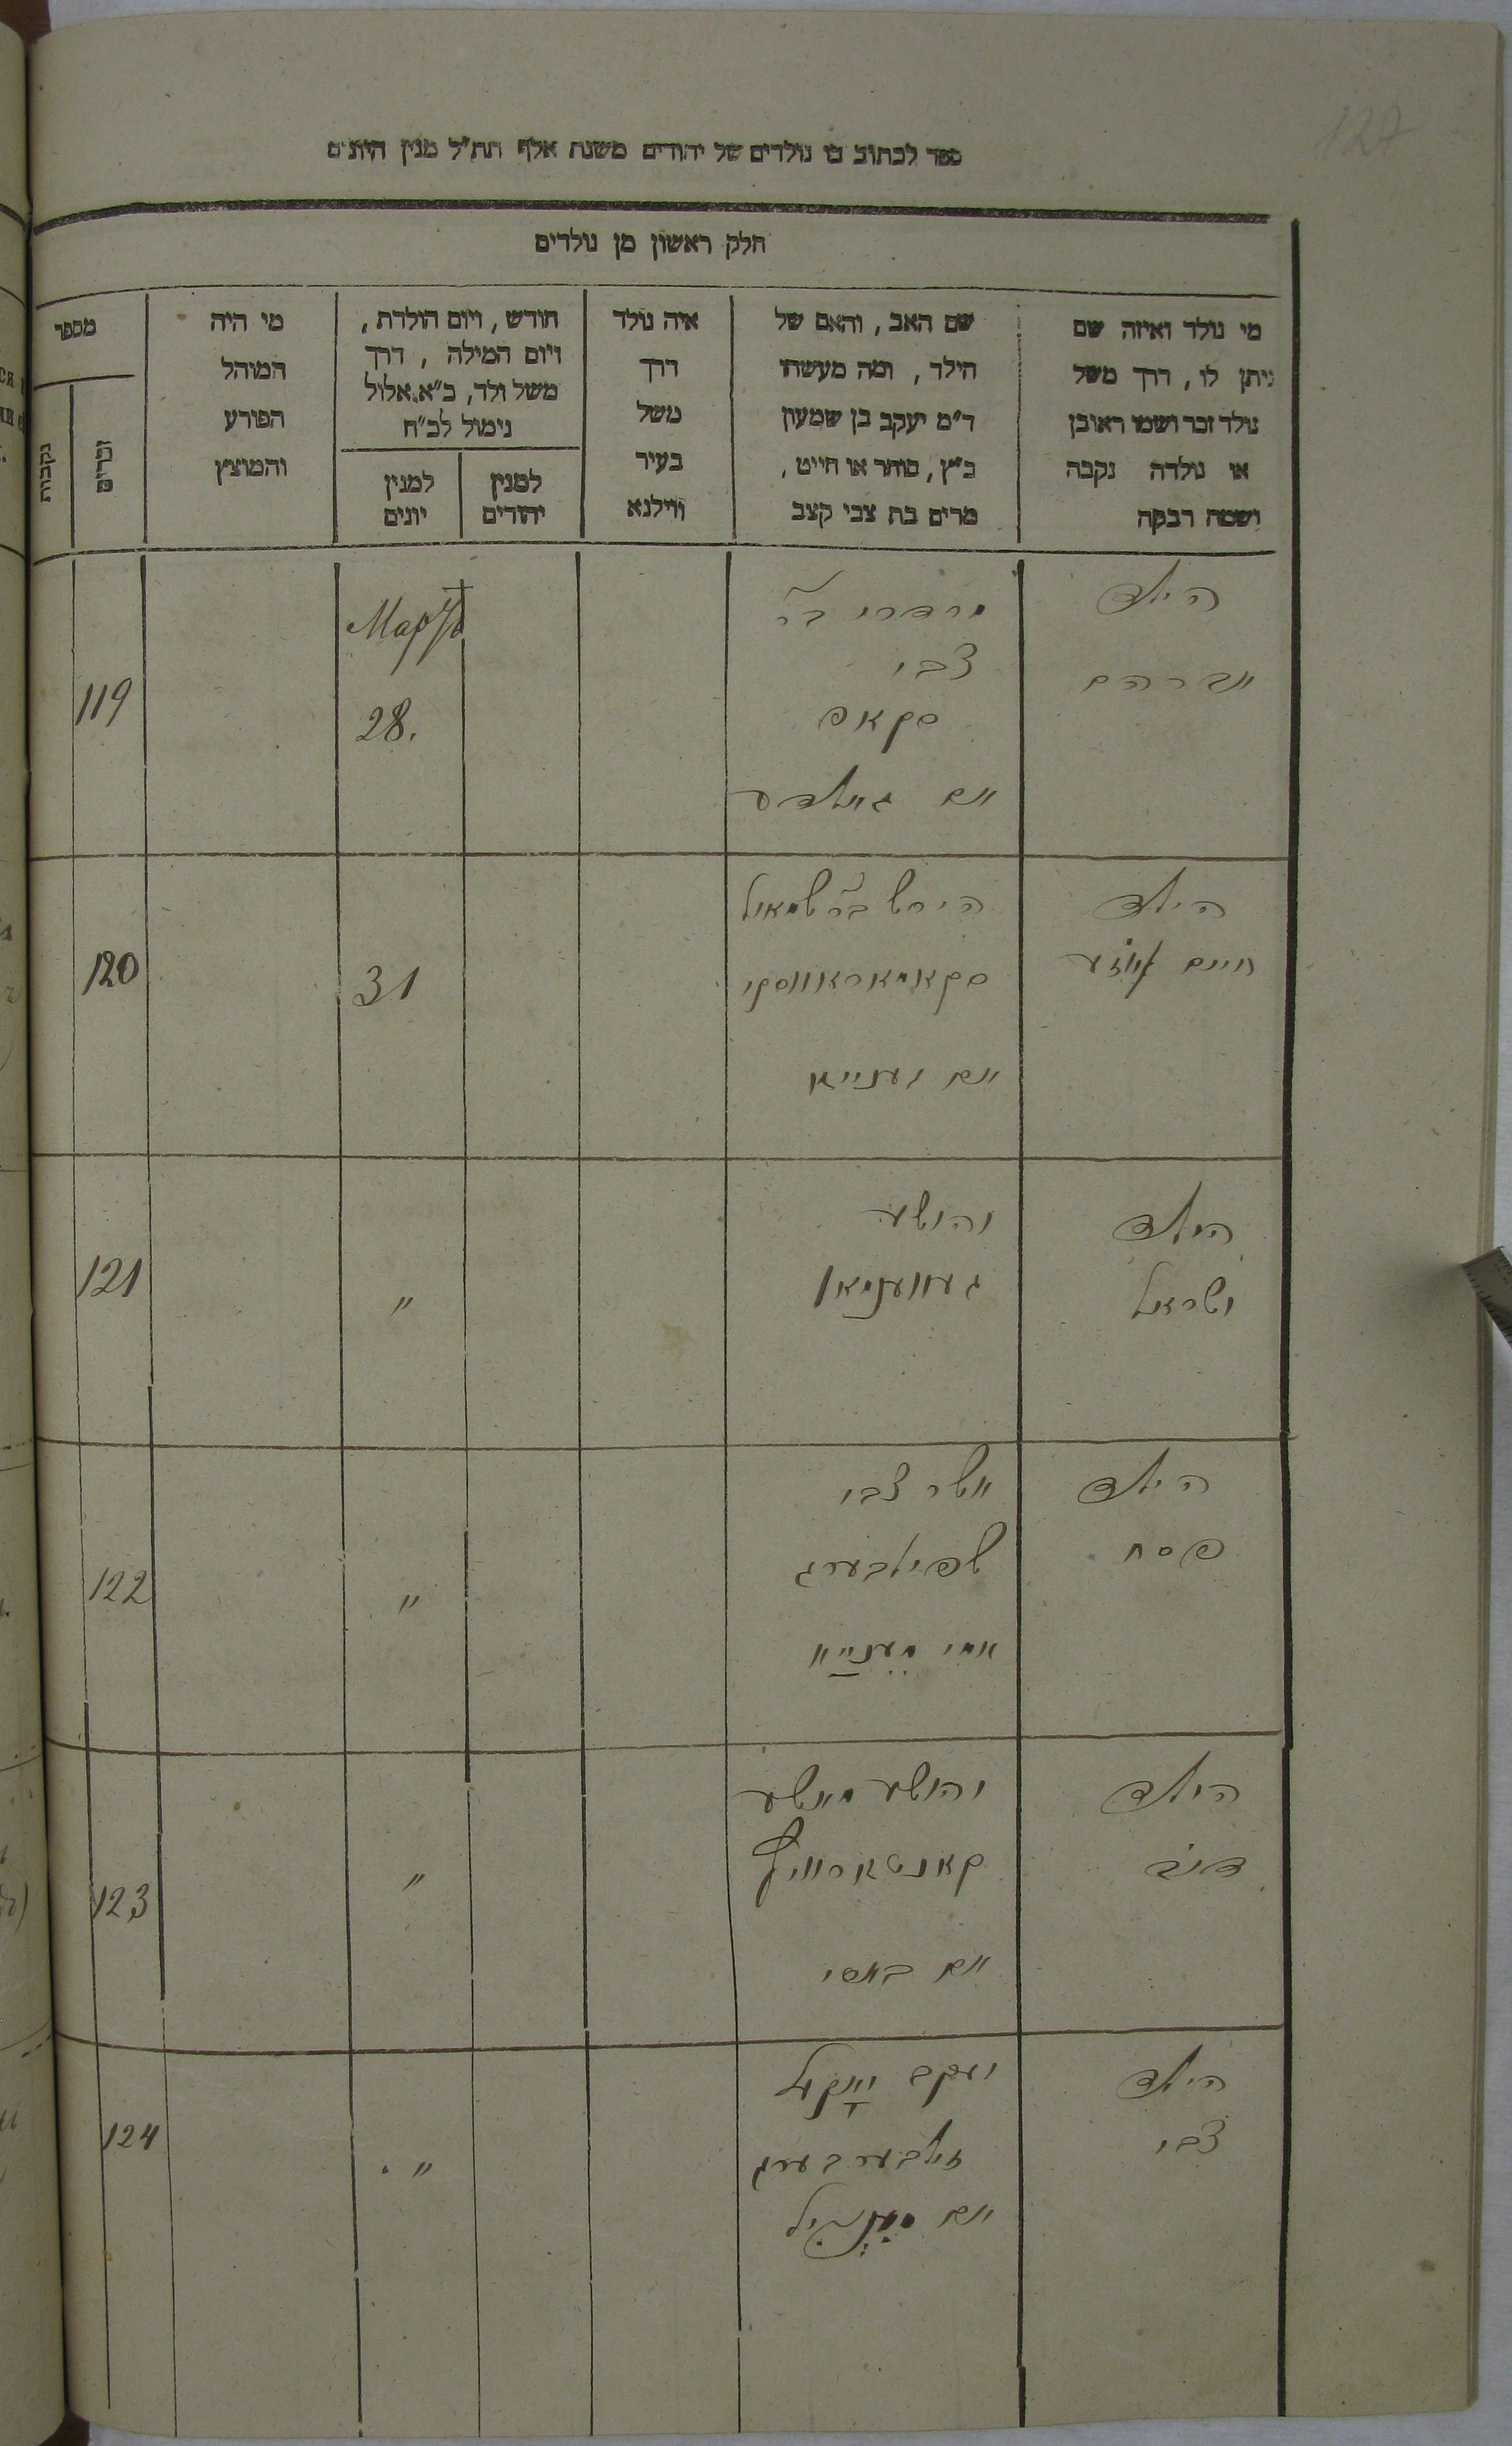 127
ספר לכתוב בו נולדים של יהודים משנת אלף תת"ל מנין היונים
חלק ראשון מן נולדים
מי נולד ואיזה שם
ניתן לו, דרך משל
נולד זכר ושמו ראובן
או נולדה נקבה
ושמה רבקה
שם האב, והאם של
הילד, ומה מעשהו
ד"מ יעקב בן שמעון
כ"ץ, סוחר או חייט,
מרים בת צבי קצב
איה נולד
דרך
משל
בעיר
ווילנא
חודש, ויום הולדת,
ויום המילה, דרך
משל ולד, כ"א אלול
נימול לכ"ח
למנין
יהודים
למנין
יונים
מי היה
המוהל
הפורע
והמוצץ
מספר
זכרים
נקבות
הילד
אברהם
מרדכי ב"ר
צבי
סקאפ
אם גאלדע
Мартъ
28.
119
הילד
חיים
הירש ב"ר שמואל
סקאמאראווסקי
אם
31
120
הילד
ישראל
יהושע
"
121
הילד
פסח
אשר צבי
שפילבערג
אמו מעניא
"
122
הילד
דוב
יהושע מאשע
קאנטאראוויץ
אם באסי
"
123
הילד
צבי
יעקב יאנקעל
זילבערבערג
אם
"
124